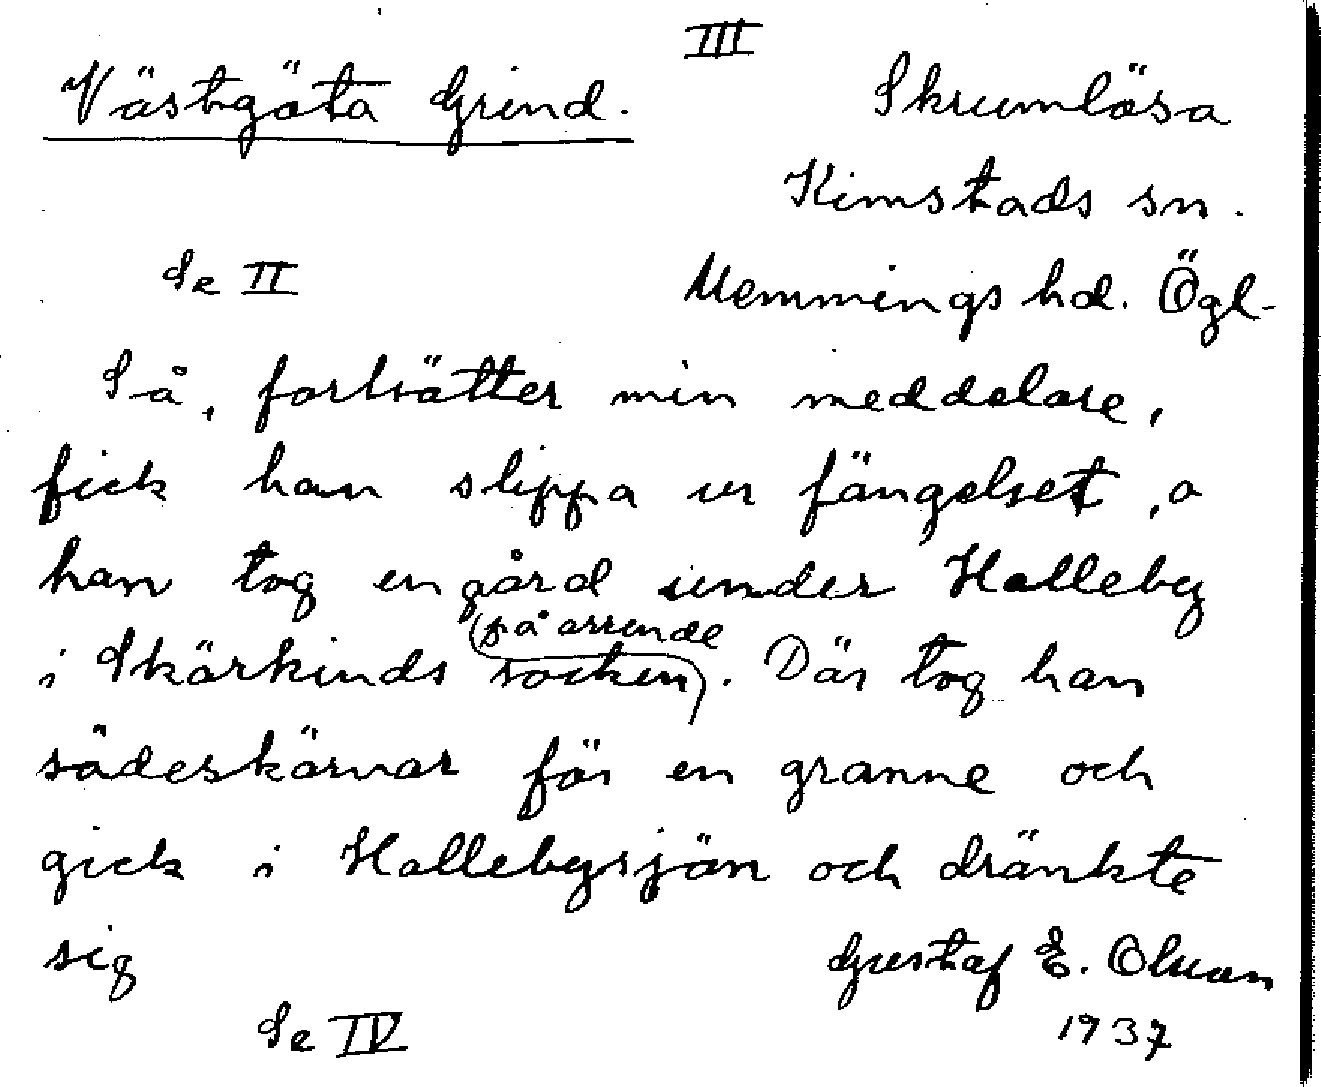 III
Västgöta Grind.
Skrumlösa
Kimstads sn.
Se II
Memmings hd. Ögl-
Så, fortsätter min meddelare,
fick han slippa ur fängelset, o
han tog en gård under Halleby
(på arrende
i Skärkinds socken). Där tog han
sädeskärvar för en granne och
gick i Hallebysjön och dränkte
sig
Gustaf E. Olsson
Se IV
1937